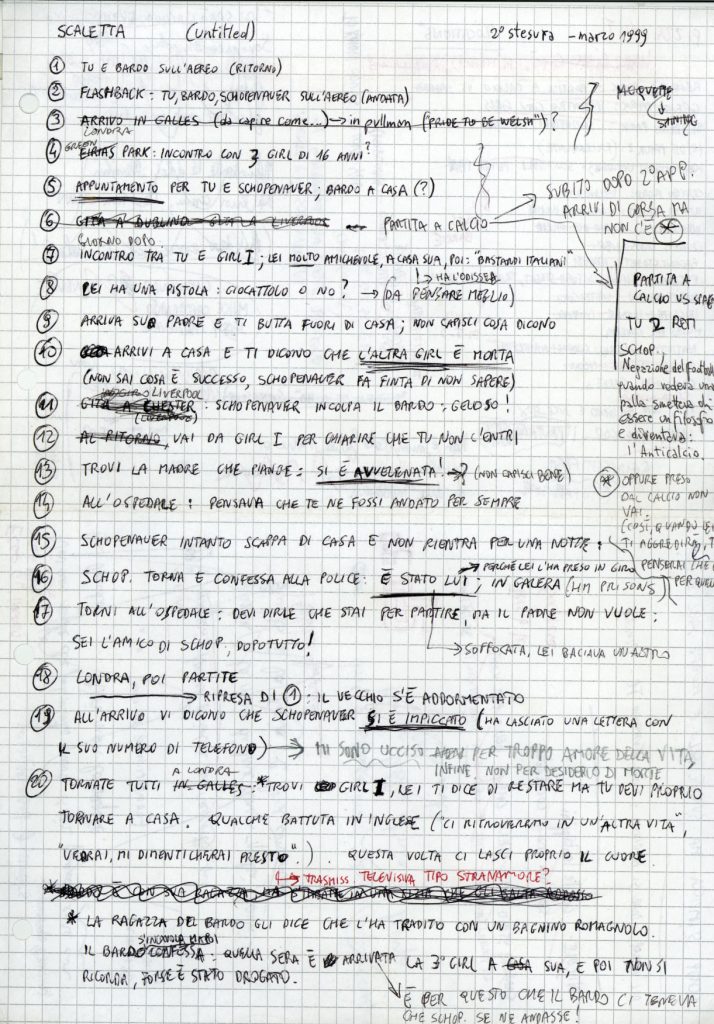 SCALETTA (untitled) 2° stesura - marzo 1999
① TU E BARDO SULL'AEREO (RITORNO)
② FLASHBACK: TU, BARDO, SCHOPENAUER SULL'AEREO (ANDATA)
③ ARRIVO IN GALLES (da capire come...) → in pullman ("PRIDE TO BE WELSH")?
LONDRA
④ GREEN EIRIAS PARK: INCONTRO CON 3 GIRL DI 16 ANNI?
⑤ APPUNTAMENTO PER TU E SCHOPENAUER; BARDO A CASA (?)
⑥ GITA A DUBLINO GITA A LIVERPOOL ← PARTITA A CALCIO
GIORNO DOPO
⑦ INCONTRO TRA TU E GIRL I; LEI MOLTO AMICHEVOLE, A CASA SUA, POI: "BASTARDI ITALIANI"
↳ HA L'ODISSEA
⑧ LEI HA UNA PISTOLA: GIOCATTOLO O NO? → (DA PENSARE MEGLIO)
⑨ ARRIVA SUO PADRE E TI BUTTA FUORI DI CASA; NON CAPISCI COSA DICONO
⑩ ARRIVI A CASA E TI DICONO CHE L'ALTRA GIRL È MORTA
(NON SAI COSA È SUCCESSO, SCHOPENAUER FA FINTA DI NON SAPERE)
IN GIRO LIVERPOOL
⑪ GITA A CHESTER: SCHOPENAUER INCOLPA IL BARDO: GELOSO!
⑫ AL RITORNO, VAI DA GIRL I PER CHIARIRE CHE TU NON C'ENTRI
⑬ TROVI LA MADRE CHE PIANGE: SI È AVVELENATA! → ? (NON CAPISCI BENE)
⑭ ALL'OSPEDALE: PENSAVA CHE TE NE FOSSI ANDATO PER SEMPRE
⑮ SCHOPENAUER INTANTO SCAPPA DI CASA E NON RIENTRA PER UNA NOTTE:
→ PERCHÉ LEI L'HA PRESO IN GIRO
⑯ SCHOP. TORNA E CONFESSA ALLA POLICE: È STATO LUI; IN GALERA (HM PRISONS)
⑰ TORNI ALL'OSPEDALE: DEVI DIRLE CHE STAI PER PARTIRE, MA IL PADRE NON VUOLE:
SEI L'AMICO DI SCHOP, DOPOTUTTO!
→ SOFFOCATA, LEI BACIAVA UN ALTRO
⑱ LONDRA, POI PARTITE
→ RIPRESA DI ①: IL VECCHIO S'È ADDORMENTATO
⑲ ALL'ARRIVO VI DICONO CHE SCHOPENAUER SI È IMPICCATO (HA LASCIATO UNA LETTERA CON
IL SUO NUMERO DI TELEFONO) → MI SONO UCCISO PER TROPPO AMORE DELLA VITA,
INFINE, NON PER DESIDERIO DI MORTE
A LONDRA
⑳ TORNATE TUTTI IN GALLES: * TROVI GIRL I, LEI TI DICE DI RESTARE MA TU DEVI PROPRIO
TORNARE A CASA. QUALCHE BATTUTA IN INGLESE ("CI RITROVEREMO IN UN'ALTRA VITA",
"VEDRAI, MI DIMENTICHERAI PRESTO".). QUESTA VOLTA CI LASCI PROPRIO IL CUORE.
↳ TRASMISS. TELEVISIVA TIPO STRANAMORE?
* LA RAGAZZA DEL BARDO GLI DICE CHE L'HA TRADITO CON UN BAGNINO ROMAGNOLO.
IL BARDO CONFESSA: QUELLA SERA È ARRIVATA LA 3° GIRL A CASA SUA, E POI NON SI
RICORDA, FORSE È STATO DROGATO.
È PER QUESTO CHE IL BARDO CI TENEVA
CHE SCHOP. SE NE ANDASSE!
MOQUETTE
SUBITO DOPO 2° APP.
ARRIVI DI CORSA MA
NON C'È *
PARTITA A
CALCIO VS
TU 2 RETI
SCHOP.,
Negazione del football
quando vedeva una
palla smetteva di
essere un filosofo
e diventava:
l'Anticalcio.
* OPPURE PRESO
DAL CALCIO NON
VAI.
(COSÌ, QUANDO LEI
TI AGGREDIRÀ, TU
PENSERAI CHE
PER QUELLO